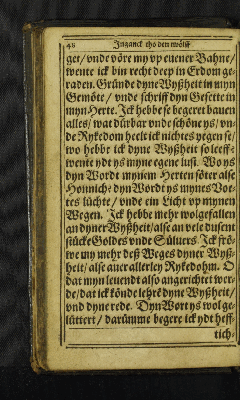 48 Inganck tho den twölff
get / vnde vöre my vp euener Bahne /
wente ick bin recht deep in Erdom ge-
raden. Gründe dyne Wyßheit in myn
Gemöte / vnde schriff dyn Gesette in
myn Herte. Ick hebbe se begeret bauen
alles / wat dürbar vnde schöne ys / vn-
de Rykedom heelt ick nichtes yegen se /
wo hebbe ick dyne Wyßheit so leeff:
wente ydt ys myne egene lust. Wo ys
dyn Wordt mynem Herten söter alse
Honnich: dyn Wordt ys mynes Vo-
tes lüchte / vnde ein Licht vp mynen
Wegen. Ick hebbe mehr wolgefallen
an dyner Wyßheit / alse an vele dusent
stücke Goldes vnde Süluers. Ick frö-
we my mehr deß Weges dyner Wyß-
heit / alse auer allerley Rykedohm. O
dat myn leuendt also angerichtet wer-
de / dat ick könde lehre dyne Wyßheit /
vnd dyne rede. Dyn Wort ys wol ge-
lüttert / darümme begere ick ydt heff-
tich-